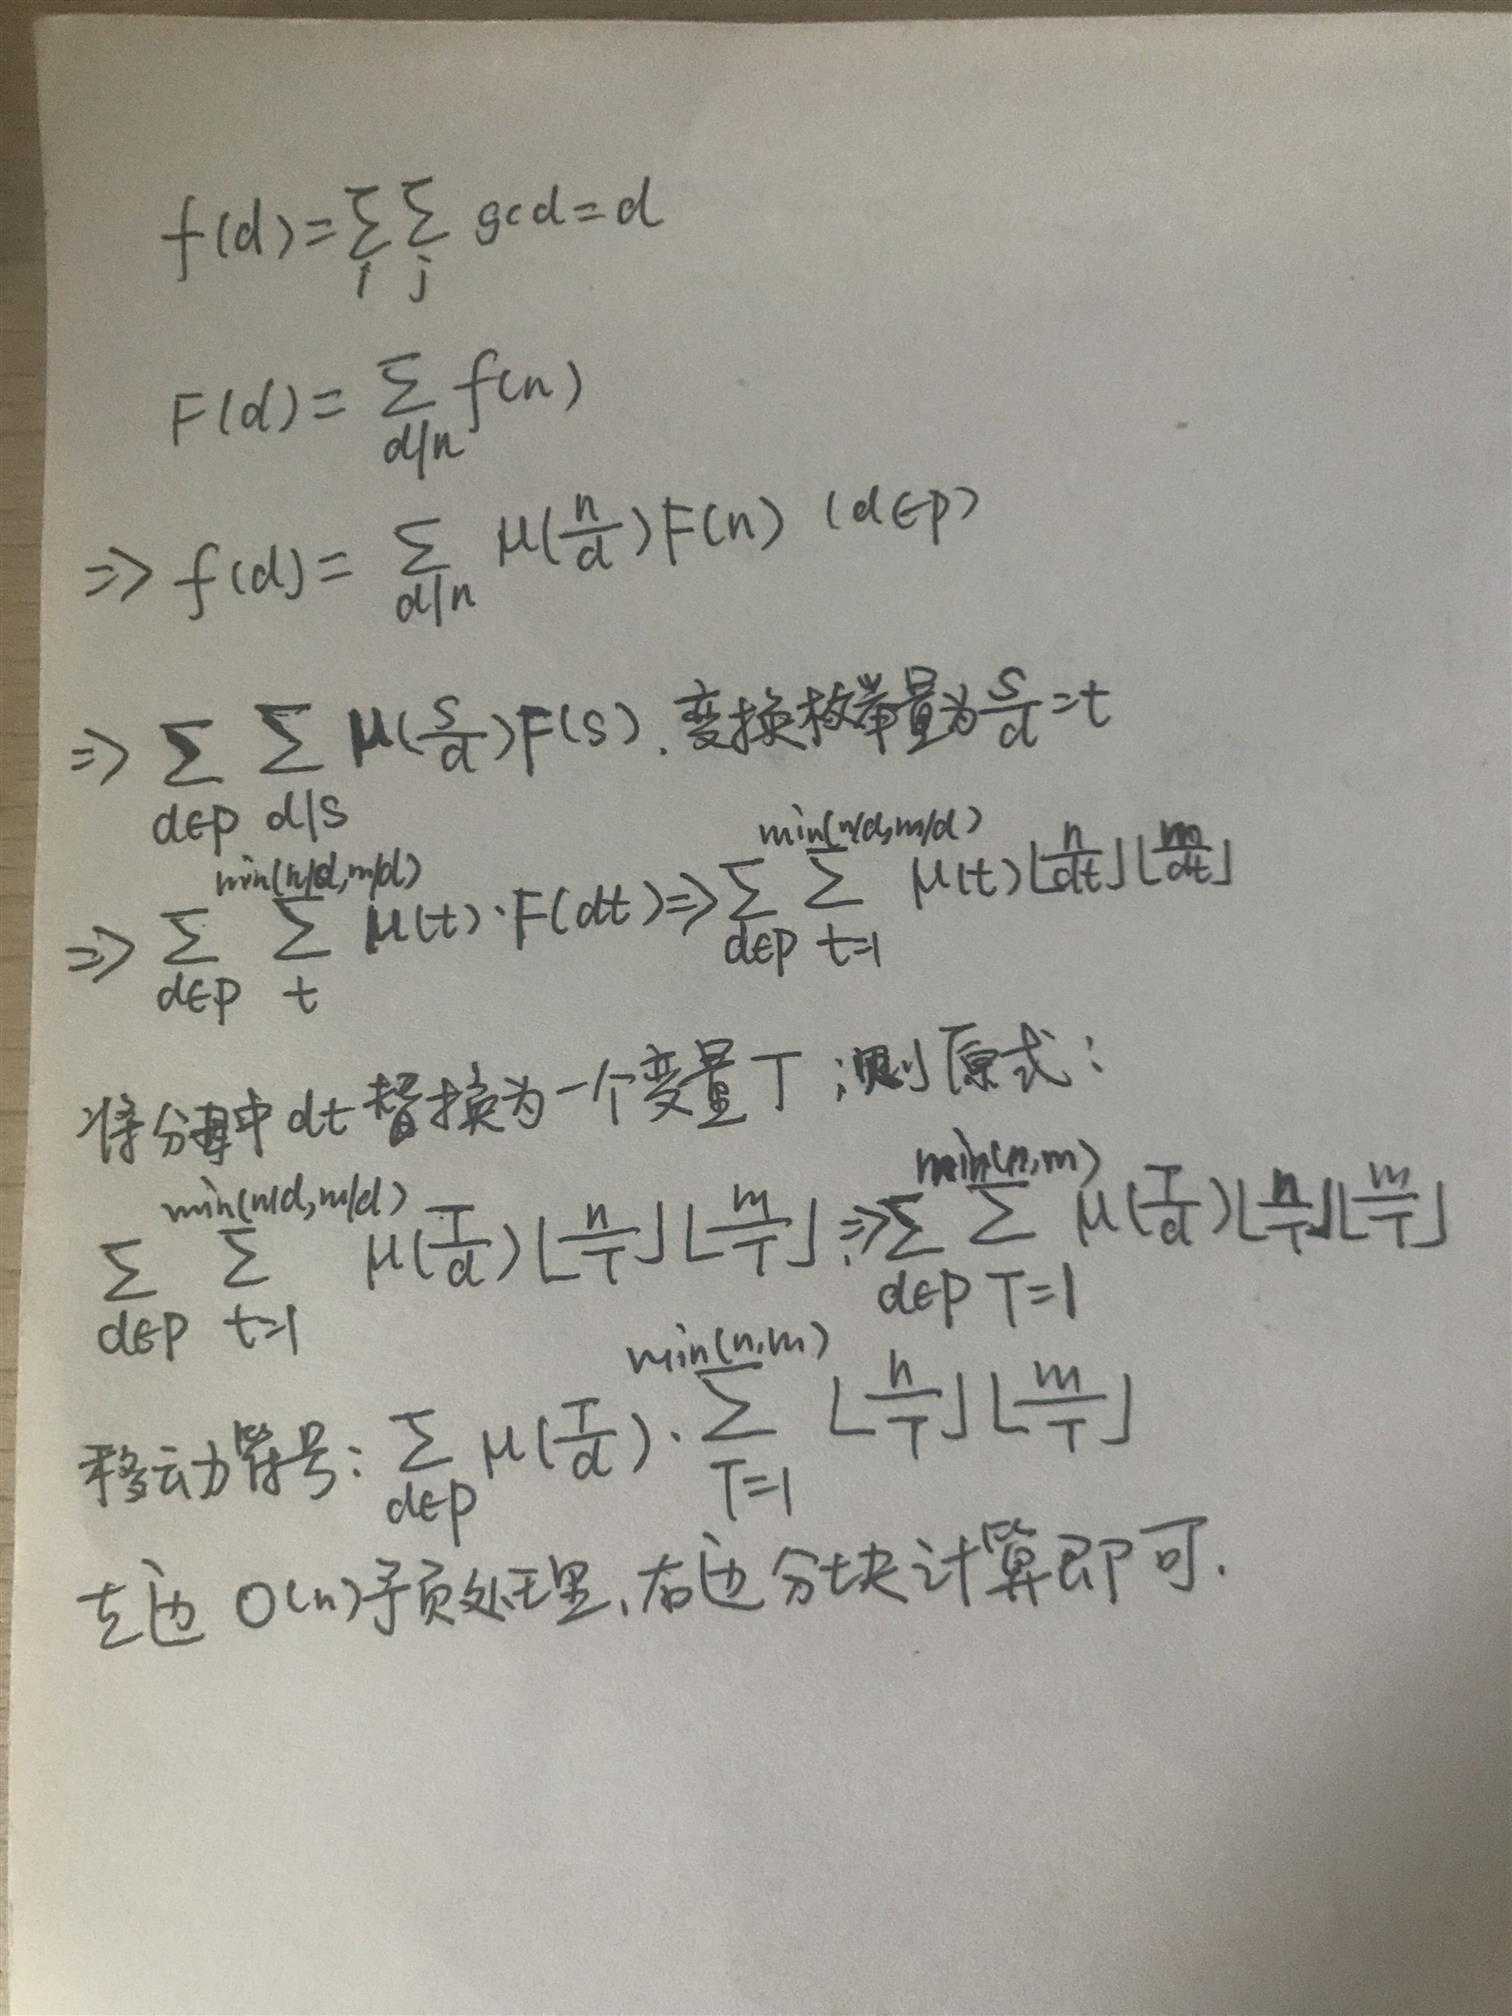 f(d)=∑_i ∑_j gcd=d
F(d)=∑_{d|n} f(n)
=> f(d)=∑_{d|n} μ(n/d)F(n) (d∈p)
=> ∑_{d∈p} ∑_{d|s} μ(s/d)F(s).变换枚举量为 s/d=t
=> ∑_{d∈p} ∑_{t}^{min(n/d,m/d)} μ(t)·F(dt) => ∑_{d∈p} ∑_{t=1}^{min(n/d,m/d)} μ(t)⌊n/dt⌋⌊m/dt⌋
将分母中dt替换为一个变量T;则原式:
∑_{d∈p} ∑_{t=1}^{min(n/d,m/d)} μ(T/d)⌊n/T⌋⌊m/T⌋ => ∑_{d∈p} ∑_{T=1}^{min(n,m)} μ(T/d)⌊n/T⌋⌊m/T⌋
移动符号: ∑_{d∈p} μ(T/d)·∑_{T=1}^{min(n,m)} ⌊n/T⌋⌊m/T⌋
左边O(n)预处理,右边分块计算即可.